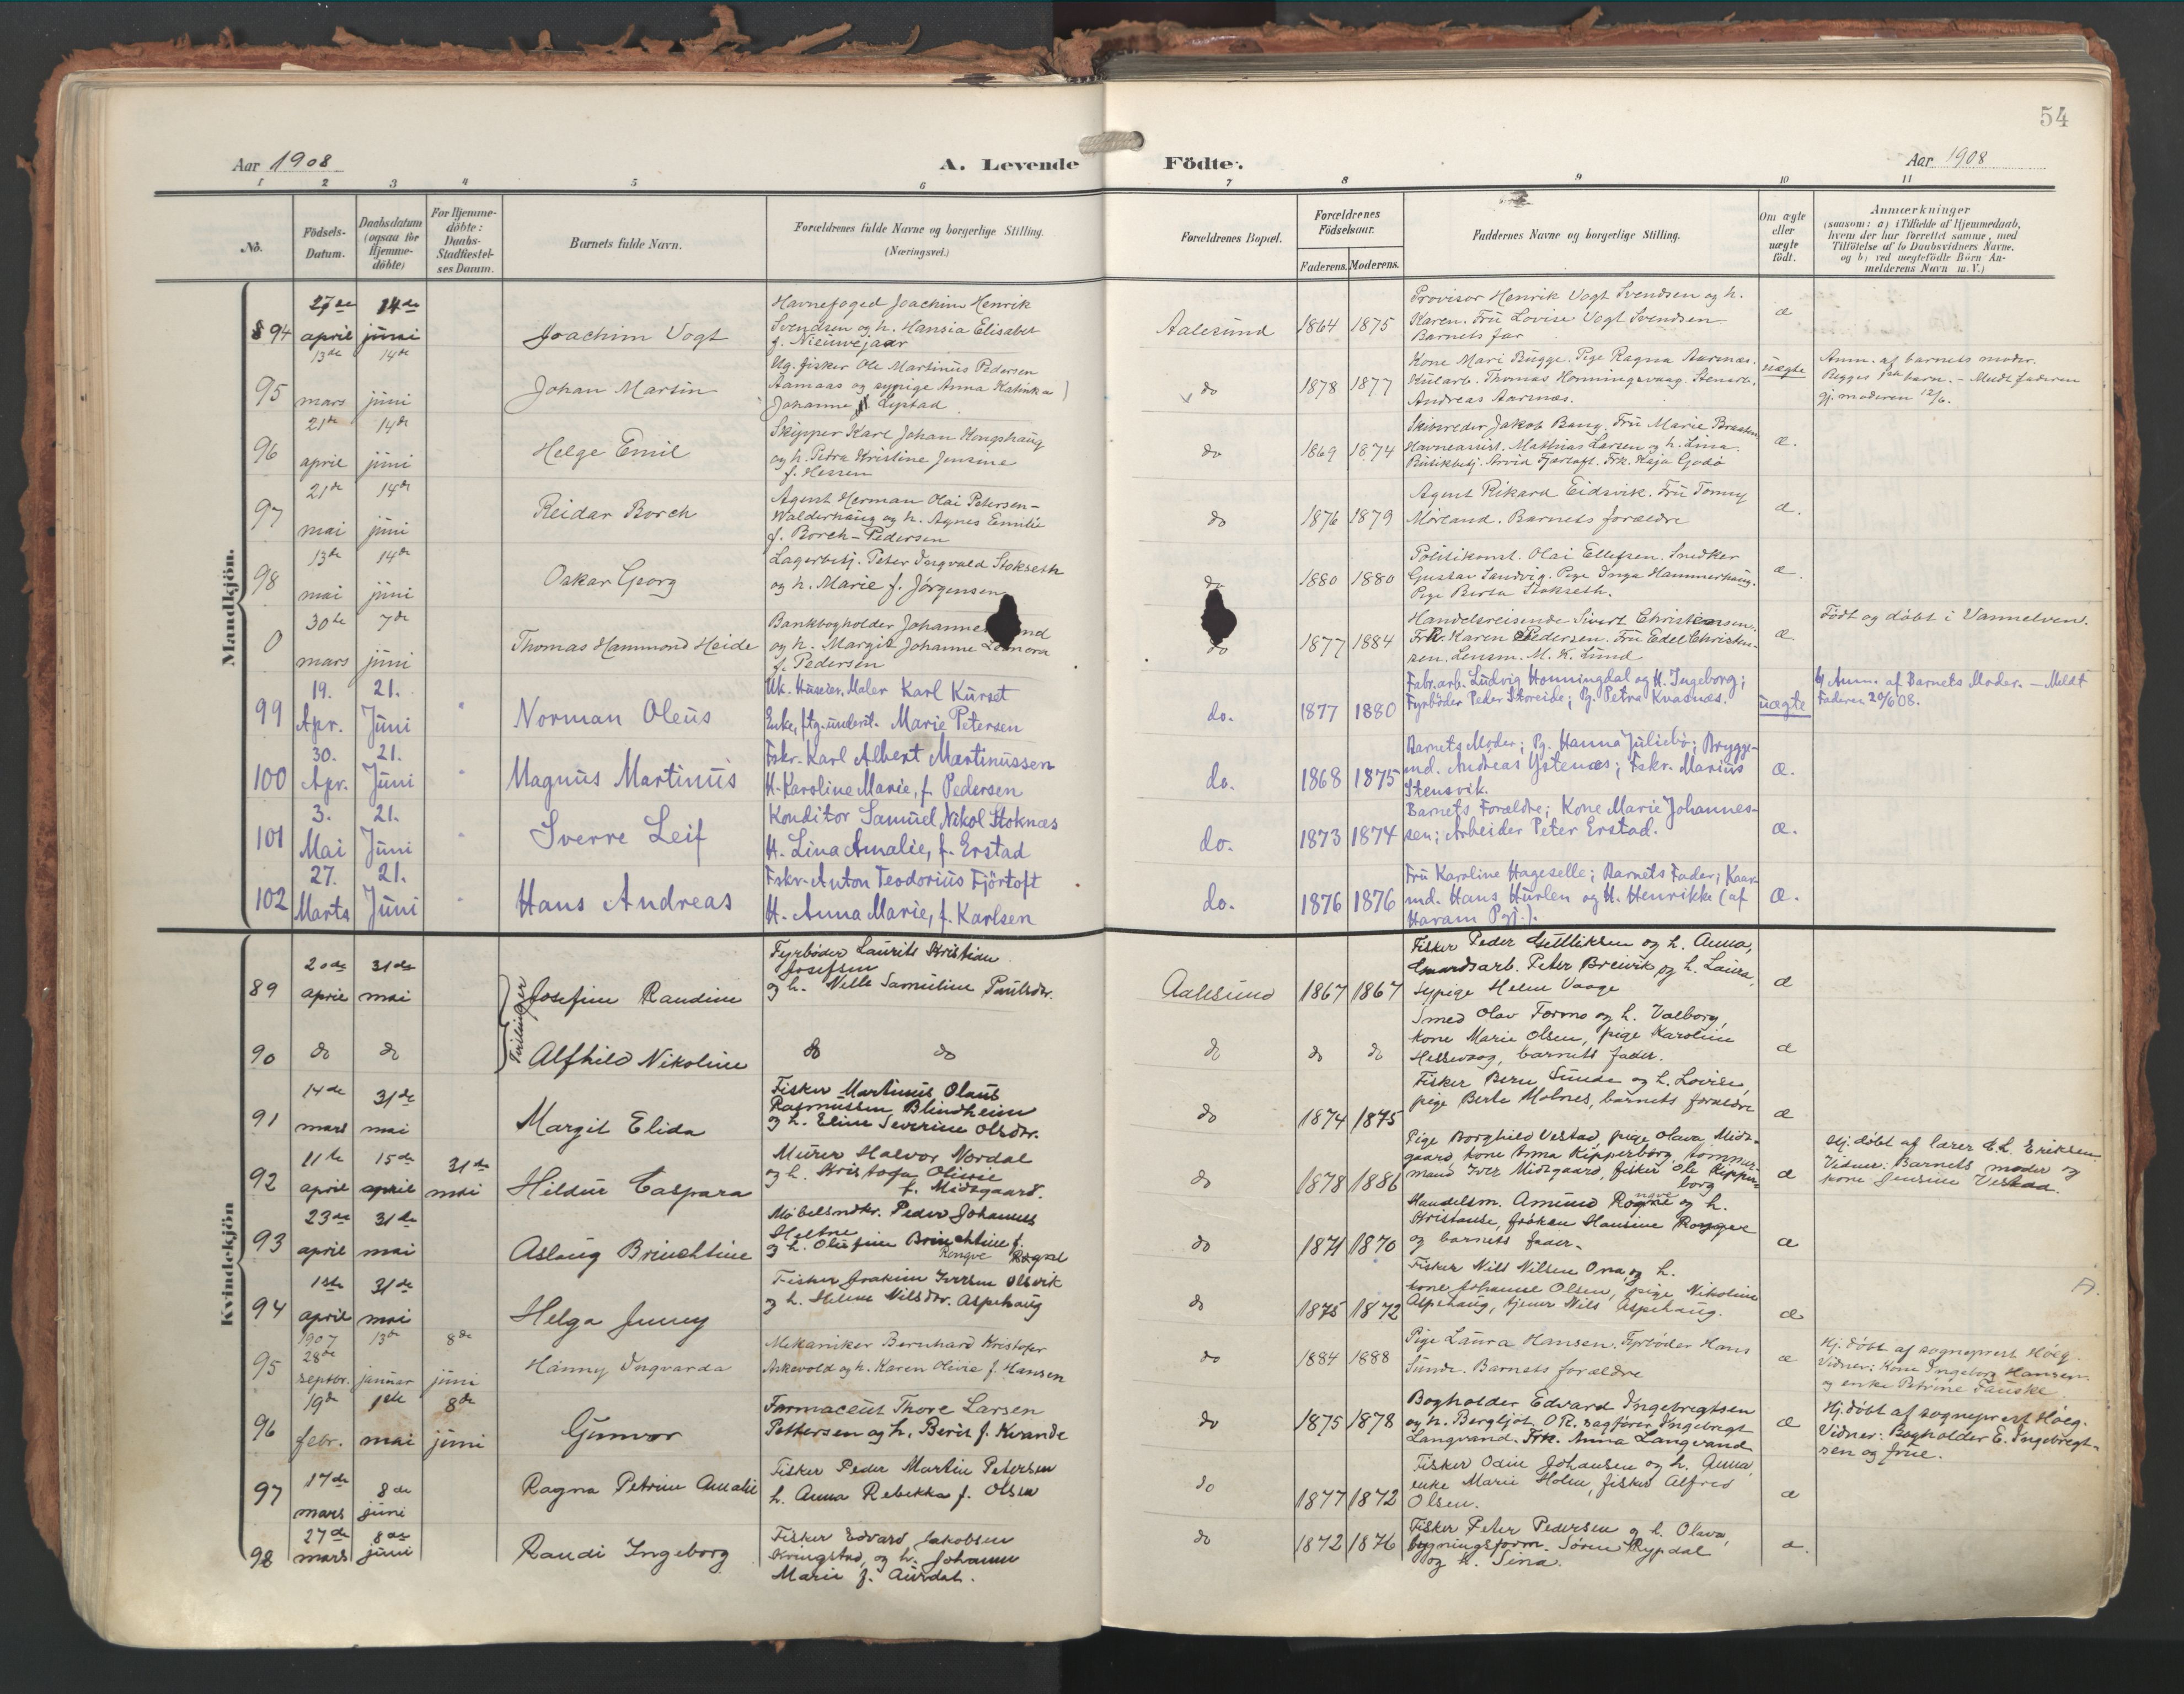 54
Aar 1908
A. Levende
Födte.
Aar 1908
1 2 3 4 5 6 7 8 9 10 11
No.
Födsels-Datum.
Daabsdatum (ogsaa for Hjemme-döbte)
For Hjemme-döbte: Daabs-Stadfæstel-ses Datum.
Barnets fulde Navn.
Forældrenes fulde Navne og borgerlige Stilling.
(Næringsvei.)
Forældrenes Bopæl.
Forældrenes Födselsaar.
Faderens. Moderens.
Faddernes Navne og borgerlige Stilling.
Om ægte eller uægte födt.
Anmærkninger
(saasom: a) i Tilfælde af Hjemmedaab,
hvem der har forrettet samme, med
Tilföielse af to Daabsvidners Navne,
og b) ved uægtefödte Börn An-
melderens Navn m. V.)
Mandkjön.
94 27de april 14de juni Joachim Vogt
Havnefoged Joachim Henrik
Svendsen og h. Hansia Elisabet
f. Nieuwejaar
Aalesund 1864 1875
Provisor Henrik Vogt Svendsen og h.
Karen. Fru Lovise Vogt Svendsen
Barnets far
æ
95 13de mars 14de juni Johan Martin
Ug. fisker Ole Martinus Pedersen
Aamaas og sypige Anna Katinka
Johanne Lystad
do 1878 1877
Kone Mari Bugge. Pige Ragna Aarnæs.
Kularb. Thomas Honningsvaag. Stenarb.
Andreas Aarnæs.
uægte
Anm. af barnets moder.
Begges 1ste barn. – Meldt faderen
gj. moderen 12/6.
96 21de april 14de juni Helge Emil
Skipper Karl Johan Kongshaug
og h. Petra Kristine Jensine
f. Hessen
do 1869 1874
Skibsreder Jakob Bang. Fru Marie Braaten
Havneassist. Mathias Larsen og h. Lina.
Butikbesj. Arvid Fjærtoft. Frk. Kaja Godø
æ.
97 21de mai 14de juni Reidar Borch
Agent Herman Olai Petersen-
Walderhaug og h. Agnes Emilie
f. Borch-Pedersen
do 1876 1879
Agent Rikard Eidsvik. Fru Tonny
Mørland. Barnets forældre
æ.
98 13de mai 14de juni Oskar Georg
Lagerbesj. Peter Ingvald Stokseth
og h. Marie f. Jørgensen
do 1880 1880
Politikonst. Olai Ellefsen. Snedker
Gustav Sandvig. Pige Inga Hammerhaug.
Pige Berta Stokseth.
æ.
0 30te mars 7de juni Thomas Hammond Heide
Bankbogholder Johannes
og h. Margit Johanne Leonora
f. Pedersen
do 1877 1884
Handelsreisende Sivert Christensen.
Frk. Karen Pedersen. Fru Edel Christen-
sen. Lensm. M. K. Lund
æ.
Født og døbt i Vannelven.
99 19. Apr. 21. Juni Norman Oleus
Uk. Huseier, Maler Karl Kurset
Enke, ftg. underst. Marie Petersen
do. 1877 1880
Fabr.arb. Ludvig Honningdal og H. Ingeborg;
Fyrbøder Peder Storeide; Pg. Petra Kvasnæs.
uægte
b) Anm. af Barnets Moder. — Meldt
Faderen 20/6 08.
100 30. Apr. 21. Juni Magnus Martinus
Fskr. Karl Albert Martinussen
H. Karoline Marie, f. Pedersen
do. 1868 1875
Barnets Moder; Pg. Hanna Juliebø; Brygge-
md. Andreas Ystenæs; Fskr. Marius
Stensvik.
æ.
101 3. Mai 21. Juni Sverre Leif
Konditor Samuel Nikol Stoknæs
H. Lina Amalie, f. Erstad
do. 1873 1874
Barnets Forældre; Kone Marie Johannes-
sen; Arbeider Peter Erstad.
æ.
102 27. Marts 21. Juni Hans Andreas
Fskr. Anton Teodorius Fjörtoft
H. Anna Marie, f. Karlsen
do. 1876 1876
Fru Karoline Hageselle; Barnets Fader; Kaar-
md. Hans Hurlen og H. Henrikke (af
Haram Pgj.).
æ.
Kvindekjön
89 20de april 31de mai Josefine Randine
Tvillinger
Fyrbøder Laurits Kristian
Josefsen
og h. Nelle Samuline Paulsdtr.
Aalesund 1867 1867
Fisker Peder Gulliksen og h. Anna,
arb. Peter Breivik og h. Laura,
Sypige Helen Vaage
æ
90 do do Alfhild Nikoline do do
do do do
Smed Olav Formo og h. Valborg,
kone Marie Olsen, pige Karoline
Hessevaag, barnets fader.
æ
91 14de mars 31de mai Margit Elida
Fisker Martinus Olaus
Rasmussen Blindheim
og h. Eline Severine Olsdtr.
do 1874 1875
Fisker Bern Sunde og h. Lovise,
pige Berte Molnes, barnets forældre
æ
92 11te april 15de april 31de mai Hildur Caspara
Murer Halvor Nordal
og h. Kristofa Olivie
f. Midsgaard.
do 1878 1886
Pige Borghild Vestad, pige Olava Mids-
gaard, kone Anna Kipperborg, tømmer-
mand Iver Midsgaard, fisker Ole Kipper-
borg
æ
Hj. døbt af lærer E. L. Eriksen
Vidner: Barnets moder og
kone Jensine Vestad.
93 23de april 31de mai Aslaug Brinchtine
Møbelsndkr. Peder Johannes
Heltne
og h. Olufine Brinchtine f.
Rongve
do 1871 1870
Handelsm. Amund Rogne og h.
Kristanse, frøken Hansine Rongve
og barnets fader.
æ
94 1ste april 31de mai Helga Jenny
Fisker Joakim Iversen Olsvik
og h. Helene Nilsdtr. Aspehaug
do 1875 1872
Fisker Nils Nilsen Ona og h.
kone Johanne Olsen, pige Nikoline
Aspehaug, tjener Nils Aspehaug.
æ
95 1907 28de septbr. 13de januar 8de juni Hanny Ingvarda
Mekaniker Bernhard Kristofer
Askevold og h. Karen Olivie f. Hansen
do 1884 1888
Pige Laura Hansen. Fyrbøder Hans
Sunde. Barnets forældre
æ
Hj. døbt af sogneprest Høeg.
Vidner: Kone Ingeborg Hansen
og enke Petrine Fauske
96 19de febr. 1ste mai 8de juni Gunvor
Farmaceut Thore Larsen
Pettersen og h. Berit f. Kvande
do 1875 1878
Bogholder Edvard Ingebregtsen
og h. Bergljot. OR. sagfører Ingebregt
Langvand. Frk. Anna Langvand
æ
Hj. døbt af sogneprest Høeg.
Vidner: Bogholder E. Ingebregt-
sen og frue.
97 17de mars 8de juni Ragna Petrine Amalie
Fisker Peder Martin Petersen
h. Anna Rebekka f. Olsen
do 1877 1872
Fisker Odin Johansen og h. Anna,
enke Marie Holm, fisker Alfred
Olsen.
æ
98 27de mars 8de juni Randi Ingeborg
Fisker Edvard Jakobsen
Kringstad, og h. Johanne
Marie f. Aursdal.
do 1872 1876
Fisker Peter Pedersen og h. Olava,
bygningsform. Søren Rypdal
og h. Sina.
æ.